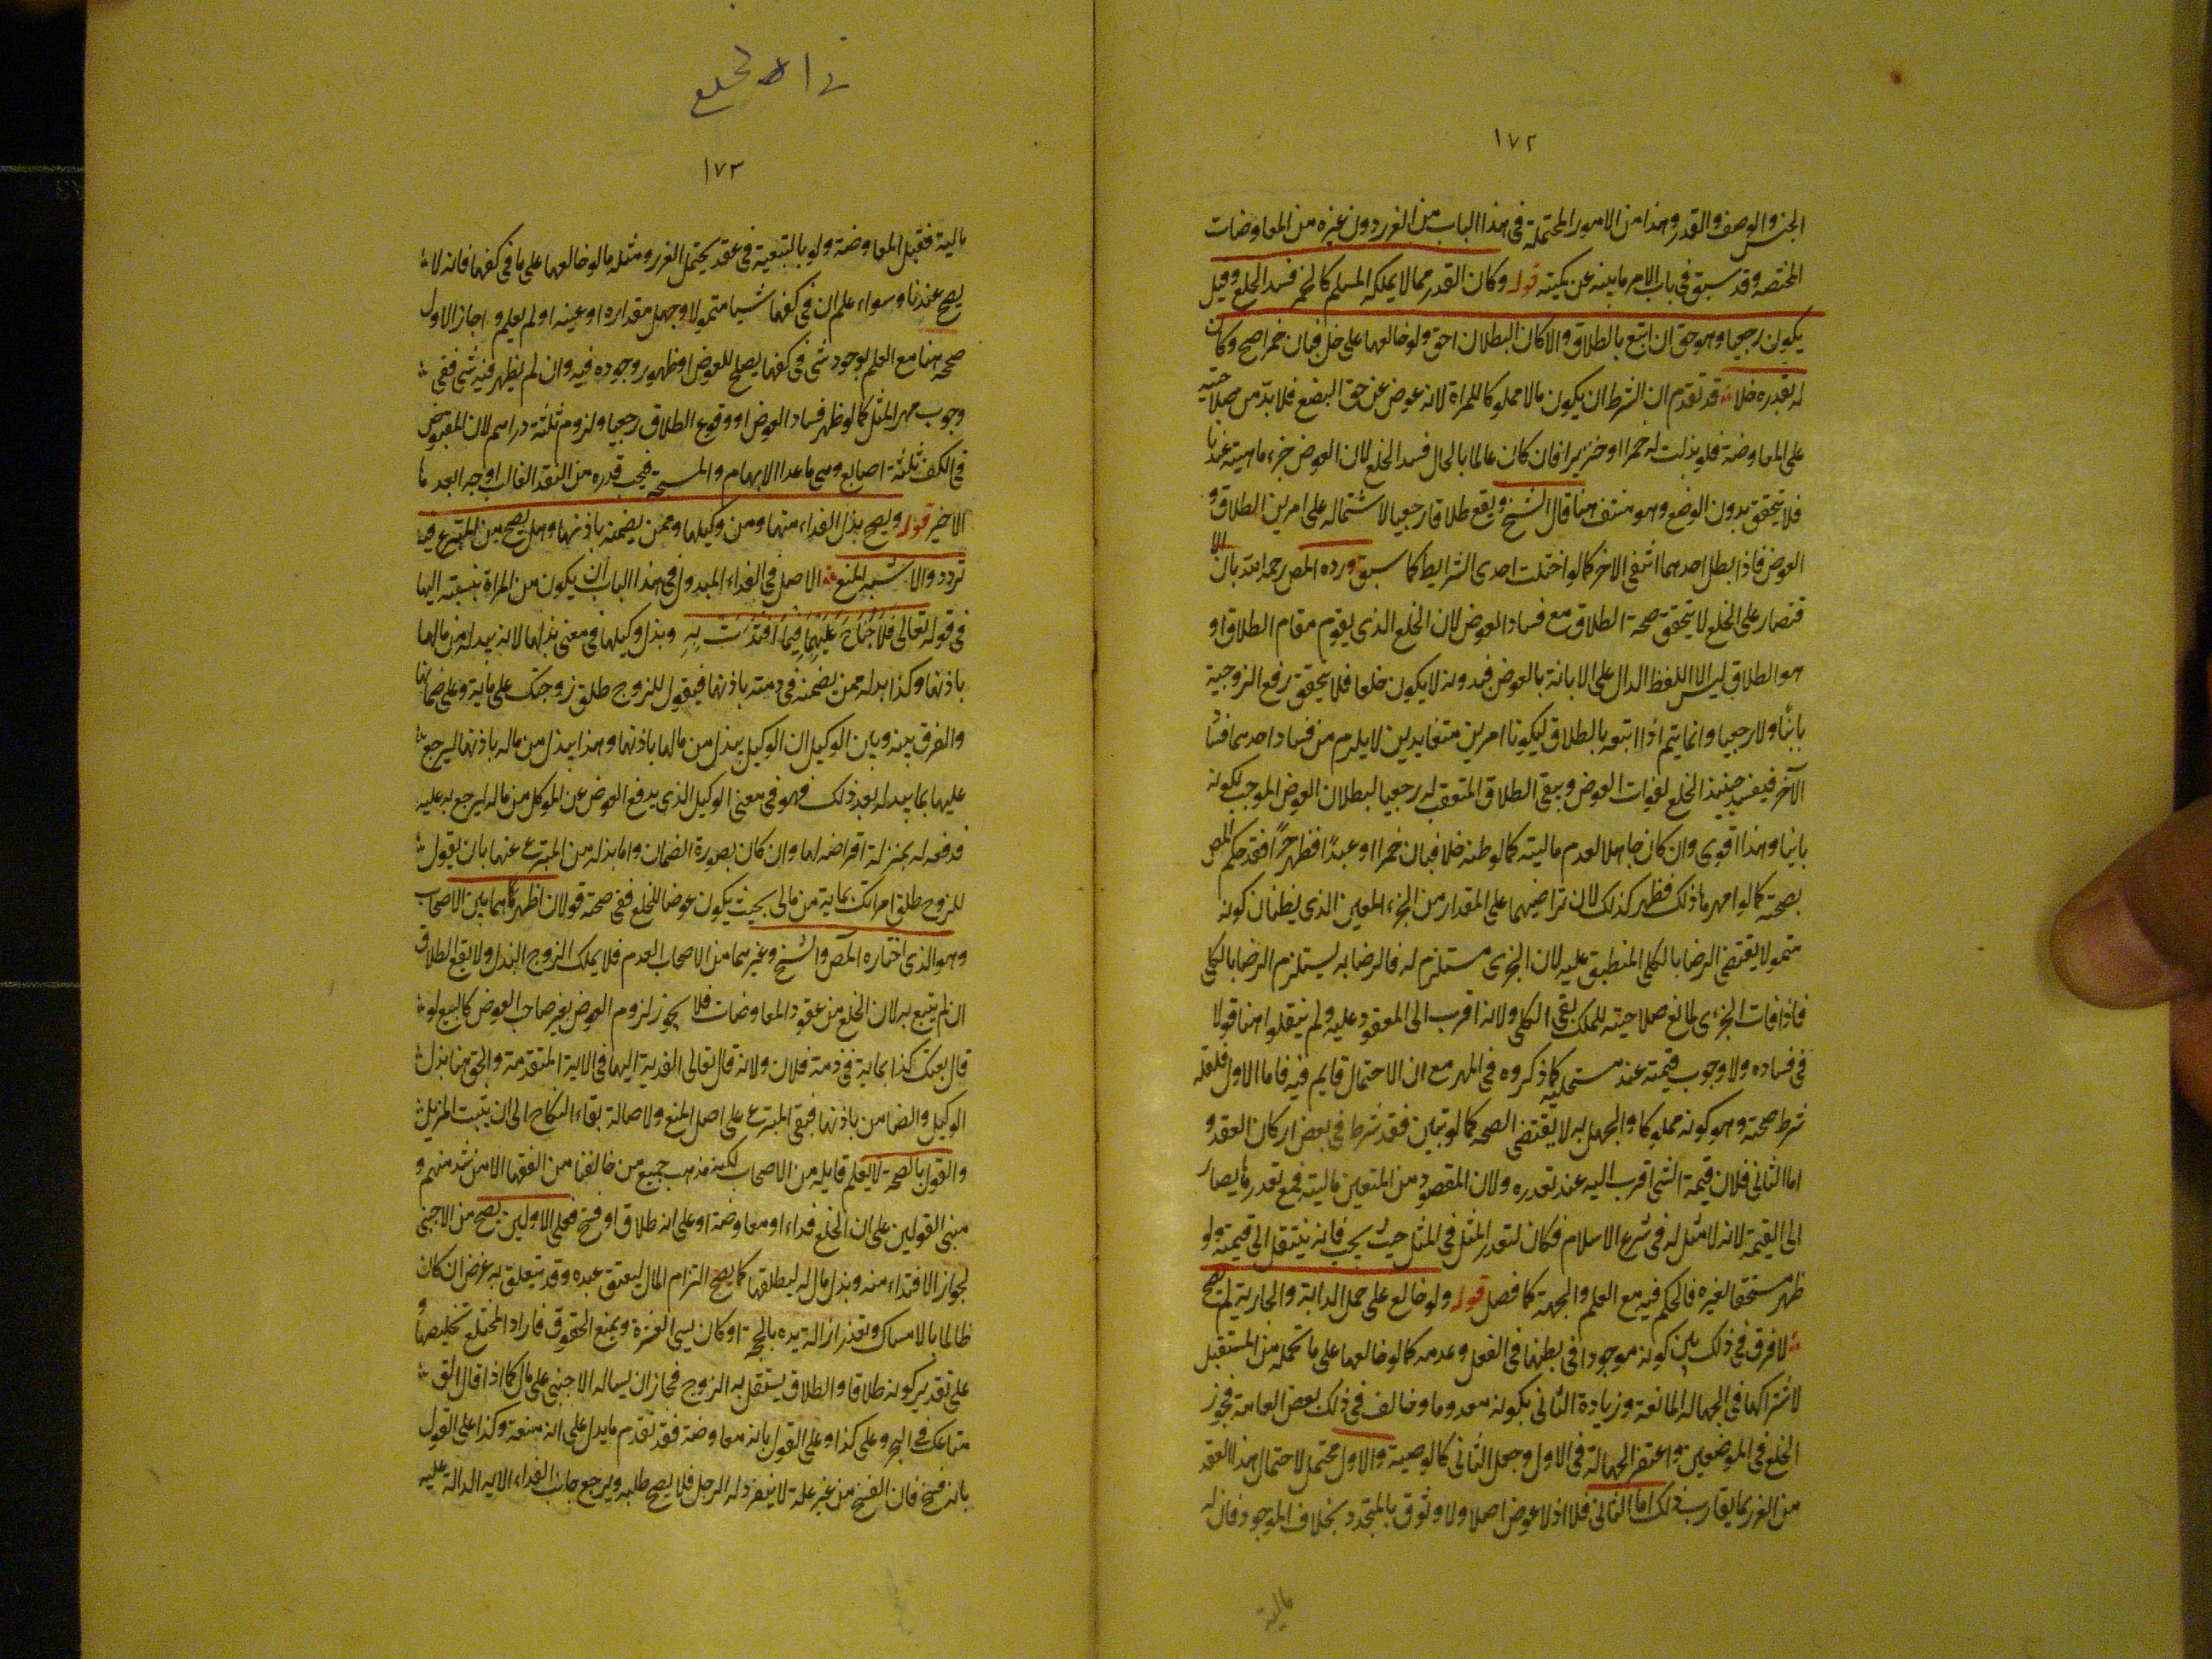 ١٧٢
الجنس والوصف والقدر وهذا من الامور المحتملة فى هذا الباب من الغرر دون غيره من المعاوضات
المختصه وقد سبق فى باب الامر ما ينبه عن بكيته قوله وكان القدر مما لا يملكه المسلم كالخمر فسد الخلع وقيل
يكون رجعيا وهو حق ان اتبع بالطلاق والا كان البطلان احق ولو خالعها على خل فبان خمرا صح وكان
له بقدره خلا قد تقدم ان الشرط ان يكون مالا مملوكا للمراة لانه عوض عن حق البضع فلا بدّ من صلاحيته
على المعاوضة فلو بذلت له خمرا او خنزيرا فان كان عالما بالحال فسد الخلع لان العوض جزء ماهيته عندنا
فلا يتحقق بدون الوضع وهو منتف هنا قال الشيخ ويقع طلاقا رجعيا لاشتماله على امرين الطلاق و
العوض فاذا بطل احدهما انتفى الاخر كما لو اختلت احدى الشرايط كما سبق ورده المص رحمه الله بان الا
قتصار على الخلع لا يتحقق صحة الطلاق مع فساد العوض لان الخلع الذى يقوم مقام الطلاق او
هو الطلاق ليس الا اللفظ الدال على الابانة بالعوض فبدونه لا يكون خلعا فلا يتحقق رفع الزوجية
بائنًا ولا رجعيا وانما يتم اذا اتبعه بالطلاق ليكونا امرين متغايرين لا يلزم من فساد احدهما فساد
الآخر فيفسد حينئذ الخلع لفوات العوض ويبقى الطلاق المتعقب له رجعيا لبطلان العوض الموجب لكونه
باينا وهذا اقوى وان كان جاهلا لعدم ماليته كما لو ظنه خلا فبان خمرا او عبدًا فظهر حرًا فقد حكم المص
بصحته كما لو امهرها ذلك فظهر كذلك لان تراضيهما على المقدار من الجزء المعين الذى يظنان كونه
متمولا يقتضى الرضا بالكلى المنطبق عليه لان الجزى مستلزم له فالرضا به يستلزم الرضا بالكلى
فاذا فات الجزءى لمانع صلاحيته للملك بقى الكلى ولانه اقرب الى المعقود عليه ولم ينقلوا هنا قولا
فى فساده ولا وجوب قيمته عند مستحليه كما ذكروه فى المهر مع ان الاحتمال قايم فيه فاما الاول فلفقد
شرط صحته وهو كونه مملوكا والجهل به لا يقتضى الصحه كما لو تبين فقد شرط فى بعض اركان العقد و
اما الثانى فلان قيمة الشى اقرب اليه عند تعذره ولان المقصود من المتعين ماليته فمع تعذره يصار
الى القيمة لانه لا مثل له فى شرع الاسلام فكان لتعذر المثل فى المثلى حيث يجب فانه ينتقل الى قيمته ولو
ظهر مستحقا لغيره فالحكم فيه مع العلم والجهة كما فصل قوله ولو خالع على حمل الدابة والجارية لم يصح
لا فرق فى ذلك بين كونه موجودا فى بطنها فى الفعل وعدمه كما لو خالعها على ما تحمله من المستقبل
لاشتراكهما فى الجهاله المانعة وزيادة الثانى بكونه معدوما وخالف فى ذلك بعض العامة فجوز
الخلع فى الموضعين واغتفر الجهالة فى الاول وجعل الثانى كالوصية والاول محتمل لاحتمال هذا العقد
من الغرر ما يقارب ذلك اما الثانى فلا اذ لا عوض اصلا ولا وثوق بالمتجدد بخلاف الموجود فان له
مالية
الخلع
١٧٣
مالية فقبل المعاوضة ولو بالتبعية فى عقد يحتمل الغرر ومثله ما لو خالعها على ما فى كفها فانه لا
يصح عندنا وسواء علم ان فى كفها شيئا متمولا وجهل مقداره او عينه او لم يعلم واجاز الاول
صحه هنا مع العلم بوجود شى فى كفها يصلح للعوض او ظهور وجوده فيه وان لم يظهر فيه شى ففى
وجوب مهر المثل كما لو ظهر فساد العوض او وقوع الطلاق رجعيا ولزوم ثلثة دراهم لان المقبوض
فى الكف ثلثة اصابع وهى ما عدا الابهام والمسبحة فيجب قدره من النقد الغالب اوجه ابعدها
الاخير قوله ويصح بذل الفداء منها ومن وكيلها وممن يضمنه باذنها وهل يصح من المتبرع فيه
تردد والاشبه المنع الاصل فى الفداء المبذول فى هذا الباب ان يكون من المراة بنسبته اليها
فى قوله تعالى فلا جناح عليهما فيما افتدت به وبذل وكيلها فى معنى بذلها لانه يبذله من مالها
باذنها وكذا بذله ممن يضمنه فى ذمته باذنها فيقول للزوج طلق زوجتك على ماية وعلى ضمانها
والفرق بينه وبين الوكيل ان الوكيل يبذل من مالها باذنها وهذا يبذل من ماله باذنها ليرجع
عليها بما يبذله بعد ذلك فهو فى معنى الوكيل الذى يدفع العوض عن الموكل من ماله ليرجع به عليه
فدفعه له بمنزلة اقراضه لها وان كان بصورة الضمان واما بذله من المتبرع عنها بان يقول
للزوج طلق امراتك بماية من مالى بحيث يكون عوضا للخلع ففى صحته قولان اظهرهما بين الاصحاب
وهو الذى اختاره المص والشيخ وغيرهما من الاصحاب العدم فلا يملك الزوج البذل ولا يقع الطلاق
ان لم يتبع به لان الخلع من عقود المعاوضات فلا يجوز لزوم العوض بغير صاحب العوض كالبيع لو
قال بعتك كذا بماية فى ذمة فلان ولانه قال تعالى الفدية اليها فى الاية المتقدمة والحق هنا بذل
الوكيل والضامن باذنها فبقى المتبرع على اصل المنع ولاصالة بقاء النكاح الى ان يثبت المزيل
والقول بالصحة لا يعلم قايله من الاصحاب لكنه مذهب جميع من خالفنا من الفقها الا من شذ منهم و
مبنى القولين على ان الخلع فداء او معاوضة او على انه طلاق او فسخ فعلى الاولين يصح من الاجنبى
لجواز الافتداء منه وبذل مال له ليطلقها كما يصح التزام المال ليعتق عبده وقد يتعلق به غرض ان كان
ظالما بالامساك وتعذر ازالة يده بالحجة او كان يسى العشرة ويمنع الحقوق فاراد المختلع تخليصها و
على تقدير كونه طلاقا والطلاق يستقل به الزوج فجاز ان يساله الاجنبى على مال كما اذا قال الق
متاعك فى البحر وعلى كذا وعلى القول بانه معاوضة فقد تقدم ما يدل على انه منعه وكذا على القول
بانه فسخ فان الفسخ من غير علة لا ينفرد له الرجل فلا يصح طلبه ويرجع جانب الفداء الايه الدالة عليه